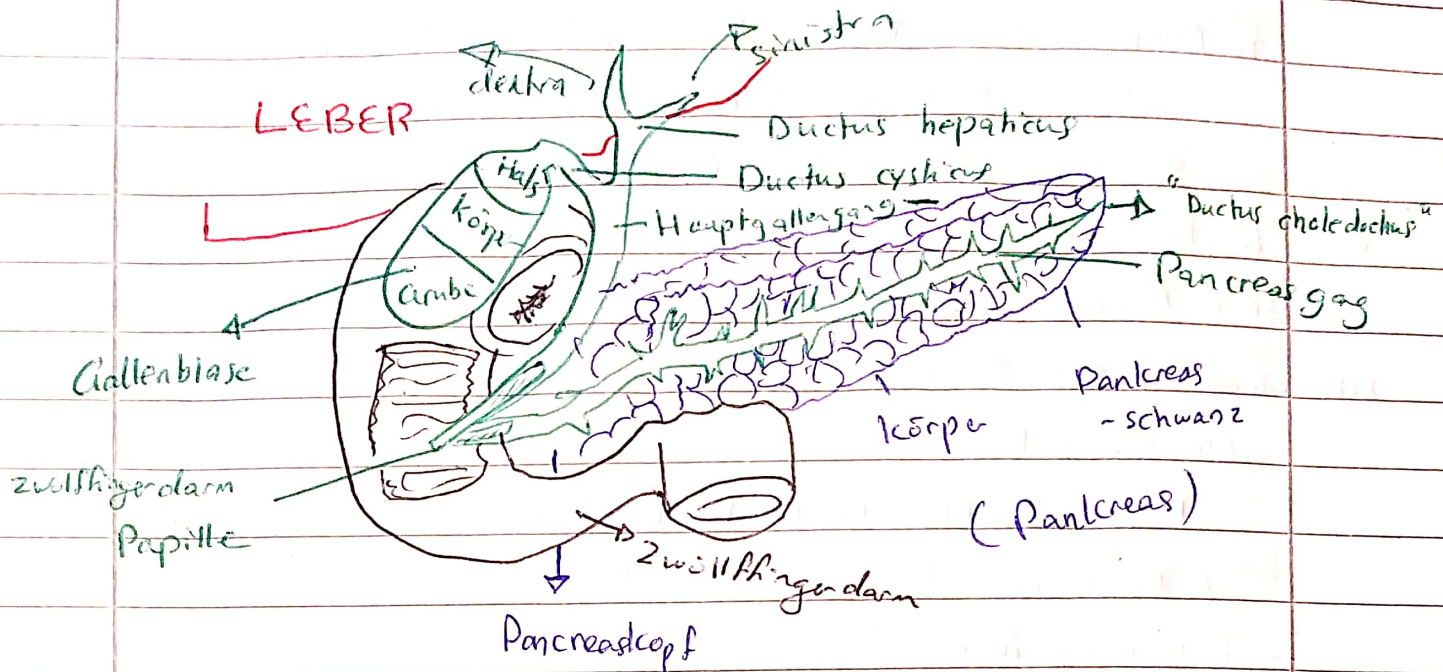 sinistra
dextra
LEBER
Ductus hepaticus
Hals
Ductus cysticus
Körper
Hauptgallengang
"Ductus choledochus"
Pancreas gag
Gallenblase
Pankreas
-schwanz
körper
zwölffingerdarm
Papille
(Pankreas)
Zwölffingerdarm
Pancreaskopf